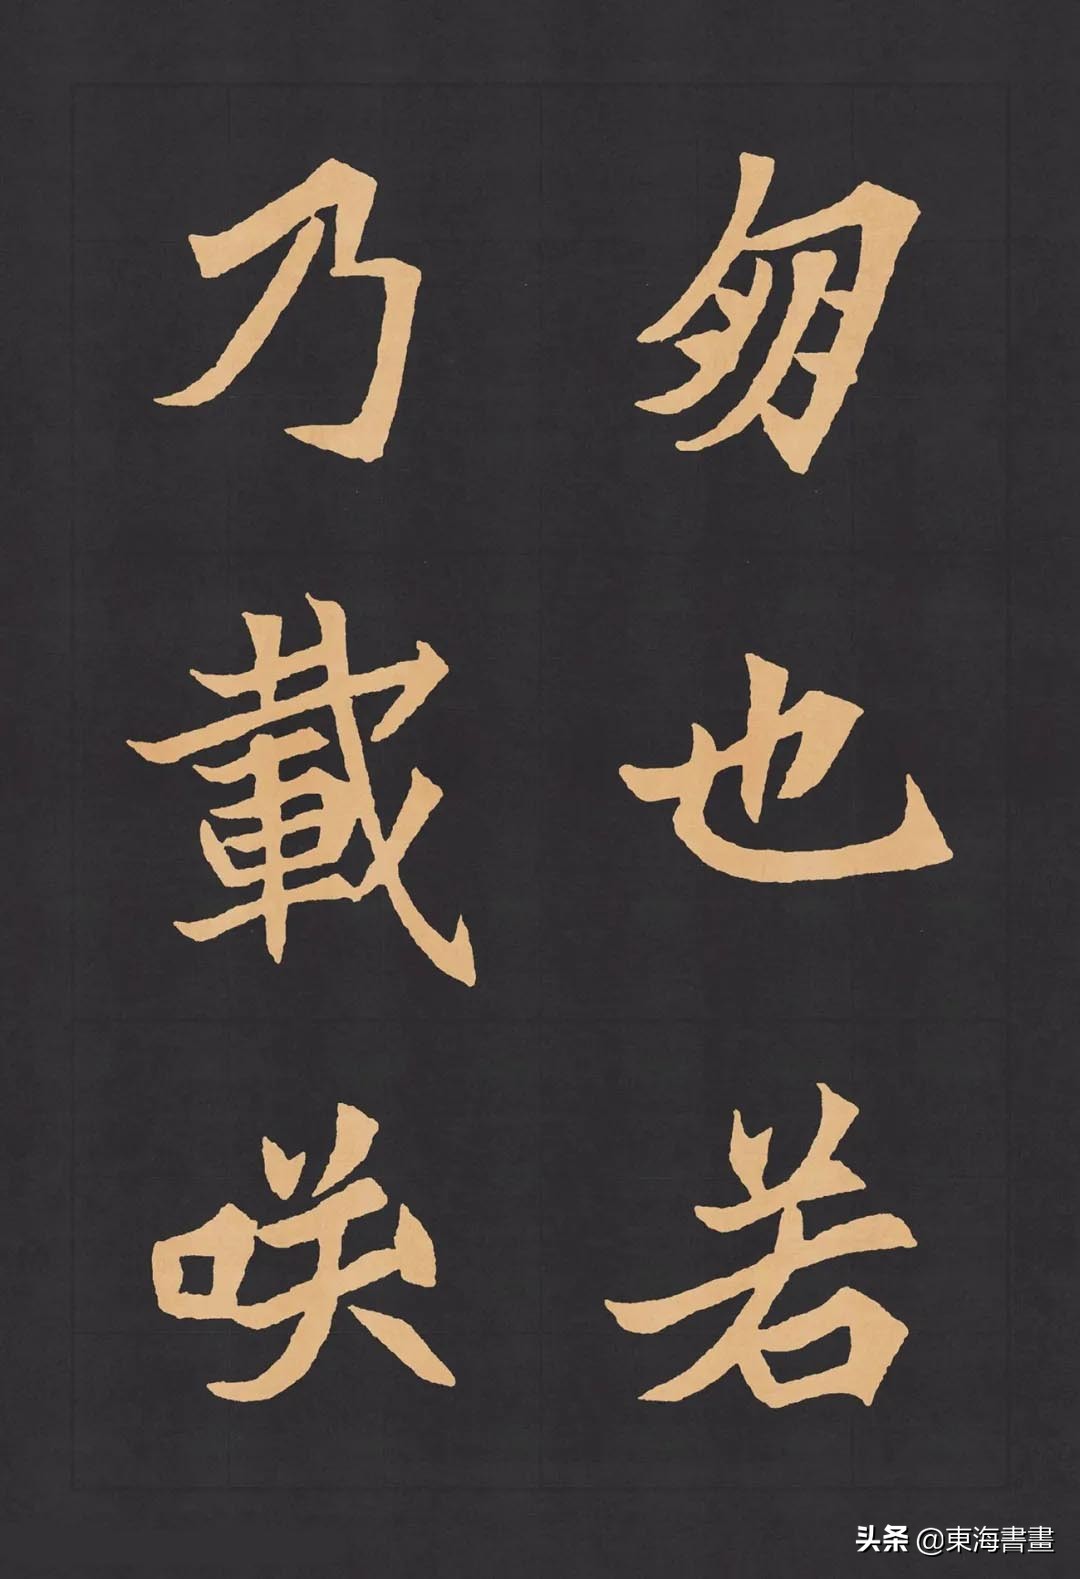 也若
乃載咲
头条 @東海書畫